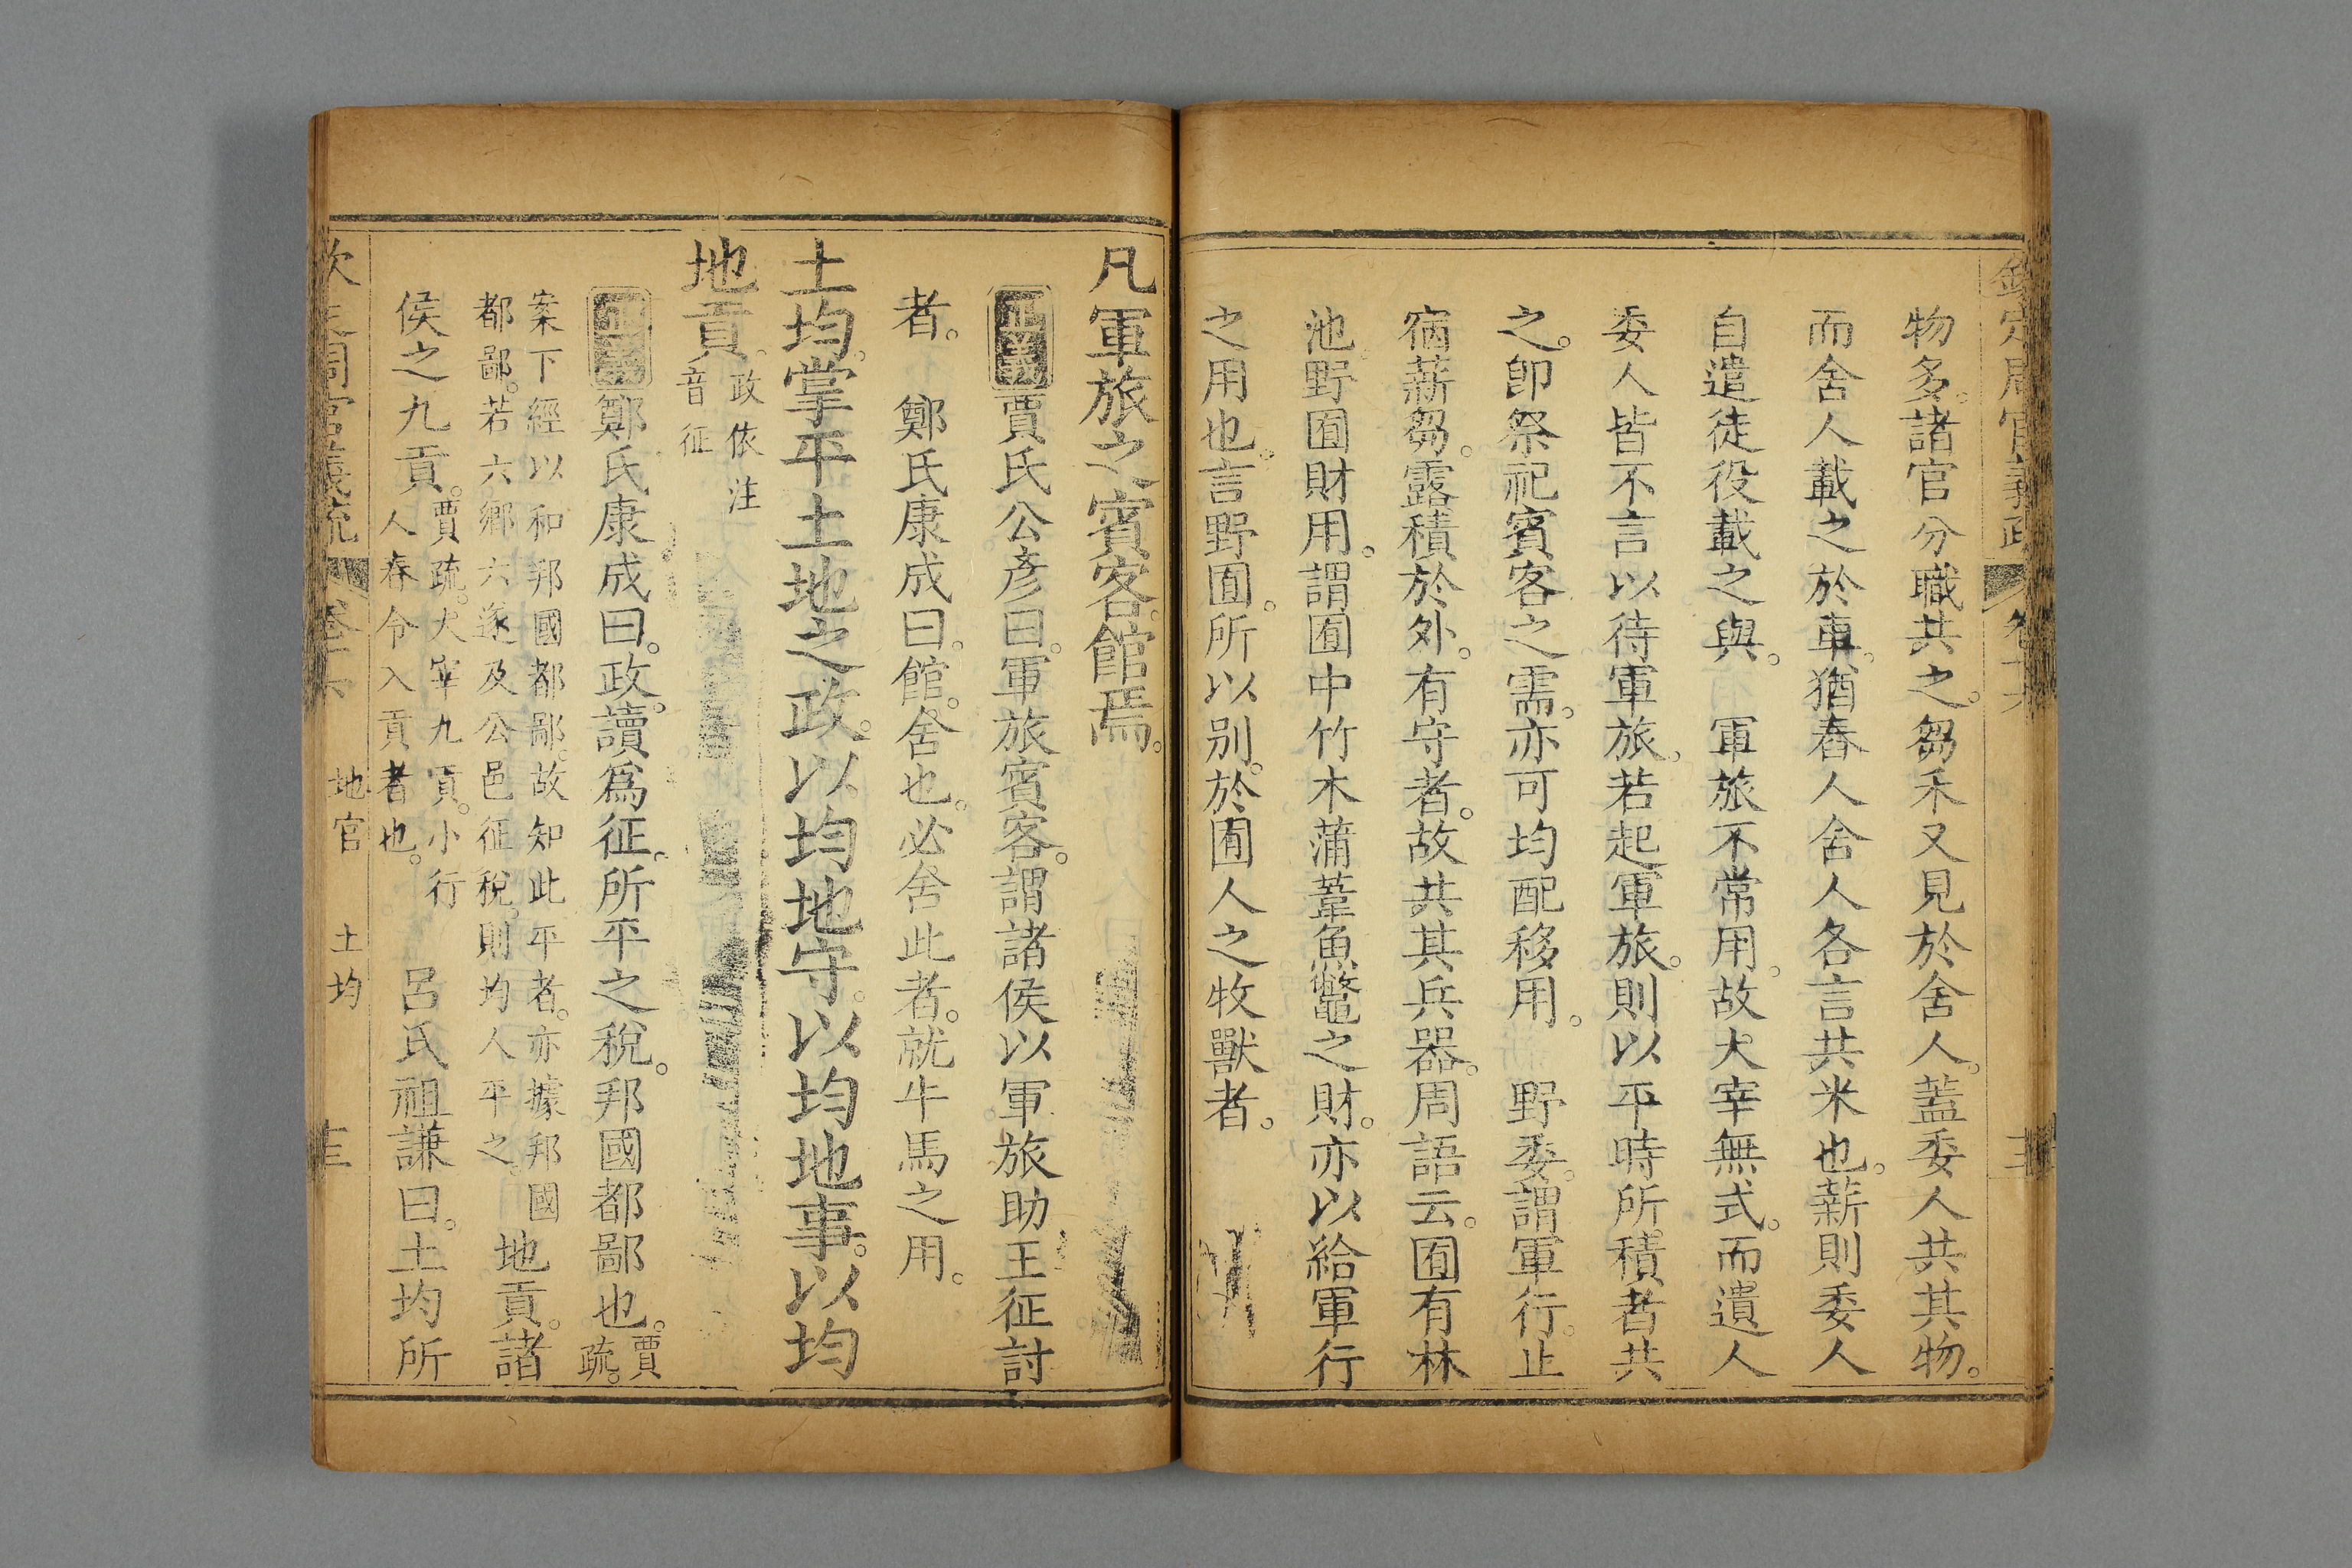 欽定周官義疏 卷十六
物多。諸官分職共之。芻禾又見於舍人。葢委人共其物。
而舍人載之於車。猶舂人舍人各言共米也。薪則委人
自遣徒役載之與。 軍旅不常用。故大宰無式。而遺人
委人皆不言以待軍旅。若起軍旅。則以平時所積者共
之。卽祭祀賓客之需。亦可均配移用。 野委。謂軍行。止
宿薪芻。露積於外。有守者。故共其兵器。周語云。囿有林
池。野囿財用。謂囿中竹木蒲葦魚鼈之財。亦以給軍行
之用也。言野囿。所以別於囿人之牧獸者。
凡軍旅之賓客。館焉。
正義賈氏公彥曰。軍旅賓客。謂諸侯以軍旅助王征討
者。 鄭氏康成曰。館。舍也。必舍此者。就牛馬之用。
土均。掌平土地之政。以均地守。以均地事。以均
地貢。政依注音征
正義鄭氏康成曰。政。讀爲征。所平之稅。邦國都鄙也。賈疏。
案下經以和邦國都鄙。故知此平者。亦據邦國都鄙。若六鄉六遂及公邑征稅。則均人平之。地貢。諸
侯之九貢。賈疏。大宰九貢。小行人春令入貢者也。 呂氏祖謙曰。土均所
周官義疏 卷十六 地官 土均